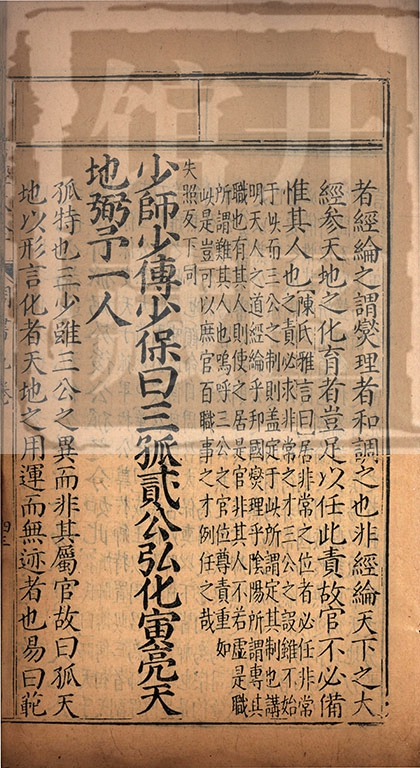 者經綸之謂燮理者和調之也非經綸天下之大
經參天地之化育者豈足以任此責故官不必備
惟其人也
陳氏雅言曰居非常之位者必任非常
之責必求非常之才三公之設雖不始
于此而三公之制則蓋定于此所謂定其制也講
明天人之道經綸乎邦國燮理乎陰陽所謂專其
職也有其人則使之居是官非其人不若虛是職
所謂難其人也嗚呼三公之官位尊責重如
此是豈可以庶官百職事之才例任之哉
失照反下同
少師少傅少保曰三孤貳公弘化寅亮天
地弼予一人
孤特也三少雖三公之貳而非其屬官故曰孤天
地以形言化者天地之用運而無迹者也易曰範